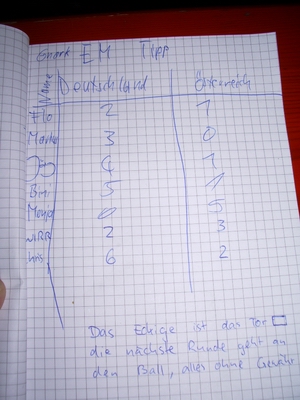 EM Tipp
Name Deutschland Österreich
Flo 2 1
3 0
4 1
5 1
0 5
2 3
6 2
Das Eckige ist das Tor
die nächste Runde geht an
den Ball, alles ohne Gewähr